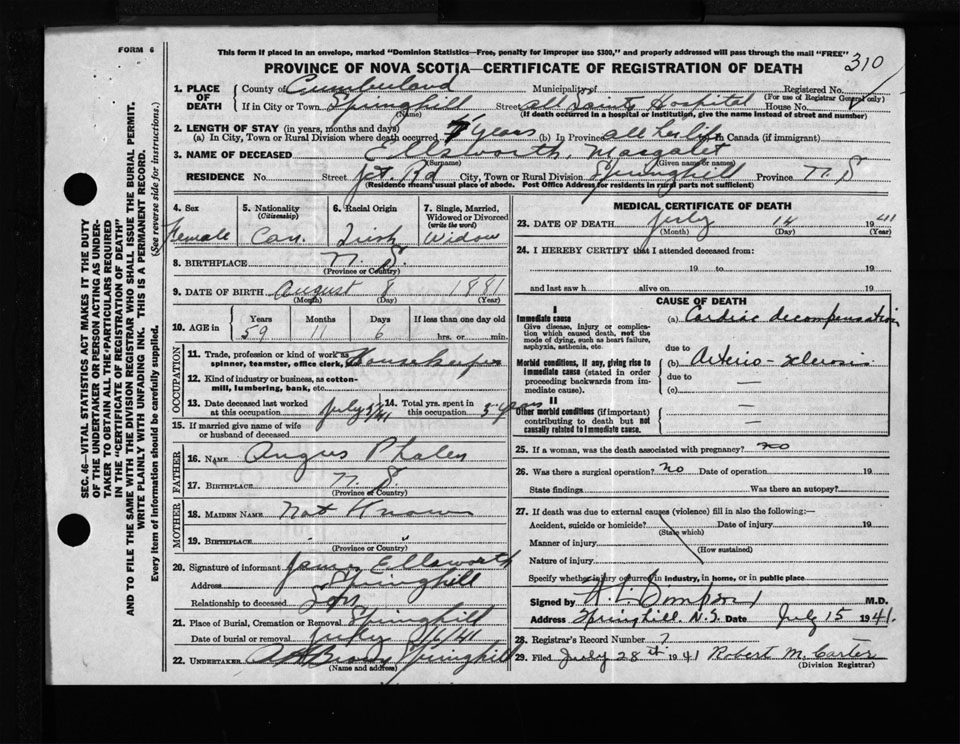 FORM 6
This form if placed in an envelope, marked "Dominion Statistics—Free, penalty for improper use $300," and properly addressed will pass through the mail "FREE"
310
PROVINCE OF NOVA SCOTIA—CERTIFICATE OF REGISTRATION OF DEATH
SEC. 46—VITAL STATISTICS ACT MAKES IT THE DUTY
OF THE UNDERTAKER OR PERSON ACTING AS UNDER-
TAKER TO OBTAIN ALL THE PARTICULARS REQUIRED
IN THE "CERTIFICATE OF REGISTRATION OF DEATH"
AND TO FILE THE SAME WITH THE DIVISION REGISTRAR WHO SHALL ISSUE THE BURIAL PERMIT.
WRITE PLAINLY WITH UNFADING INK. THIS IS A PERMANENT RECORD.
Every item of information should be carefully supplied. (See reverse side for instructions.)
1. PLACE OF DEATH
County of Cumberland Municipality of Registered No.
(For use of Registrar General only)
If in City or Town Springhill Street All Saints Hospital House No.
(Name) (If death occurred in a hospital or institution, give the name instead of street and number)
2. LENGTH OF STAY (in years, months and days)
(a) In City, Town or Rural Division where death occurred 7 years (b) In Province all her life in Canada (if immigrant)
3. NAME OF DECEASED Ellsworth, Margaret
(Surname) (Given name or names)
RESIDENCE No. Street Jct. Rd City, Town or Rural Division Springhill Province N. S
(Residence means usual place of abode. Post Office Address for residents in rural parts not sufficient)
4. Sex
Female
5. Nationality
(Citizenship)
Can.
6. Racial Origin
Irish
7. Single, Married,
Widowed or Divorced
(write the word)
Widow
8. BIRTHPLACE N. S.
(Province or Country)
9. DATE OF BIRTH August 8 1881
(Month) (Day) (Year)
10. AGE in Years Months Days If less than one day old
59 11 6 hrs. or min.
OCCUPATION
11. Trade, profession or kind of work as
spinner, teamster, office clerk, Housekeeper
12. Kind of industry or business, as cotton-
mill, lumbering, bank, etc.
13. Date deceased last worked
at this occupation July 5/41
14. Total yrs. spent in
this occupation 5 years
15. If married give name of wife
or husband of deceased
FATHER
16. NAME Angus Phalen
17. BIRTHPLACE N. S.
(Province or Country)
MOTHER
18. MAIDEN NAME Not Known
19. BIRTHPLACE " "
(Province or Country)
20. Signature of informant James Ellsworth
Address Springhill
Relationship to deceased Son
21. Place of Burial, Cremation or Removal Springhill
Date of burial or removal July 16/41
22. UNDERTAKER Brown Springhill
(Name and address)
MEDICAL CERTIFICATE OF DEATH
23. DATE OF DEATH July 14 1941
(Month) (Day) (Year)
24. I HEREBY CERTIFY that I attended deceased from:
19 to 19
and last saw h alive on 19
CAUSE OF DEATH
I
Immediate cause
Give disease, injury or complica-
tion which caused death, not the
mode of dying, such as heart failure,
asphyxia, asthenia, etc.
(a) Cardiac decompensation
due to
Morbid conditions, if any, giving rise to
immediate cause (stated in order
proceeding backwards from im-
mediate cause).
(b) Arterio-sclerosis
due to
(c) —
II
Other morbid conditions (if important)
contributing to death but not
causally related to immediate cause.
—
—
25. If a woman, was the death associated with pregnancy? No
26. Was there a surgical operation? No Date of operation 19
State findings Was there an autopsy?
27. If death was due to external causes (violence) fill in also the following:—
Accident, suicide or homicide? Date of injury 19
(State which)
Manner of injury
(How sustained)
Nature of injury
Specify whether injury occurred in industry, in home, or in public place
Signed by Simpson M.D.
Address Springhill. N.S. Date July 15 1941.
28. Registrar's Record Number 7
29. Filed July 28th 1941 Robert M. Carter
(Division Registrar)